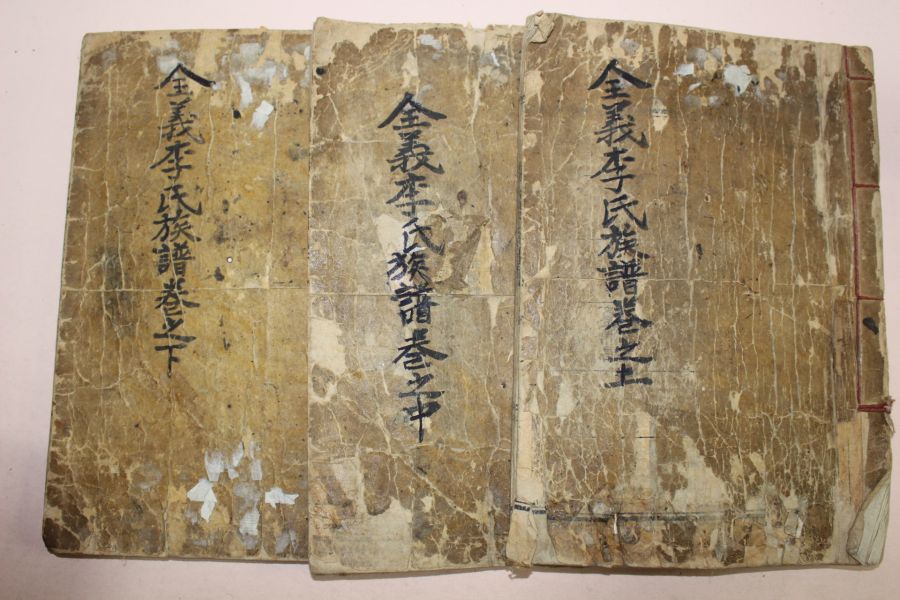 全義李氏族譜卷之上
全義李氏族譜卷之中
全義李氏族譜卷之下